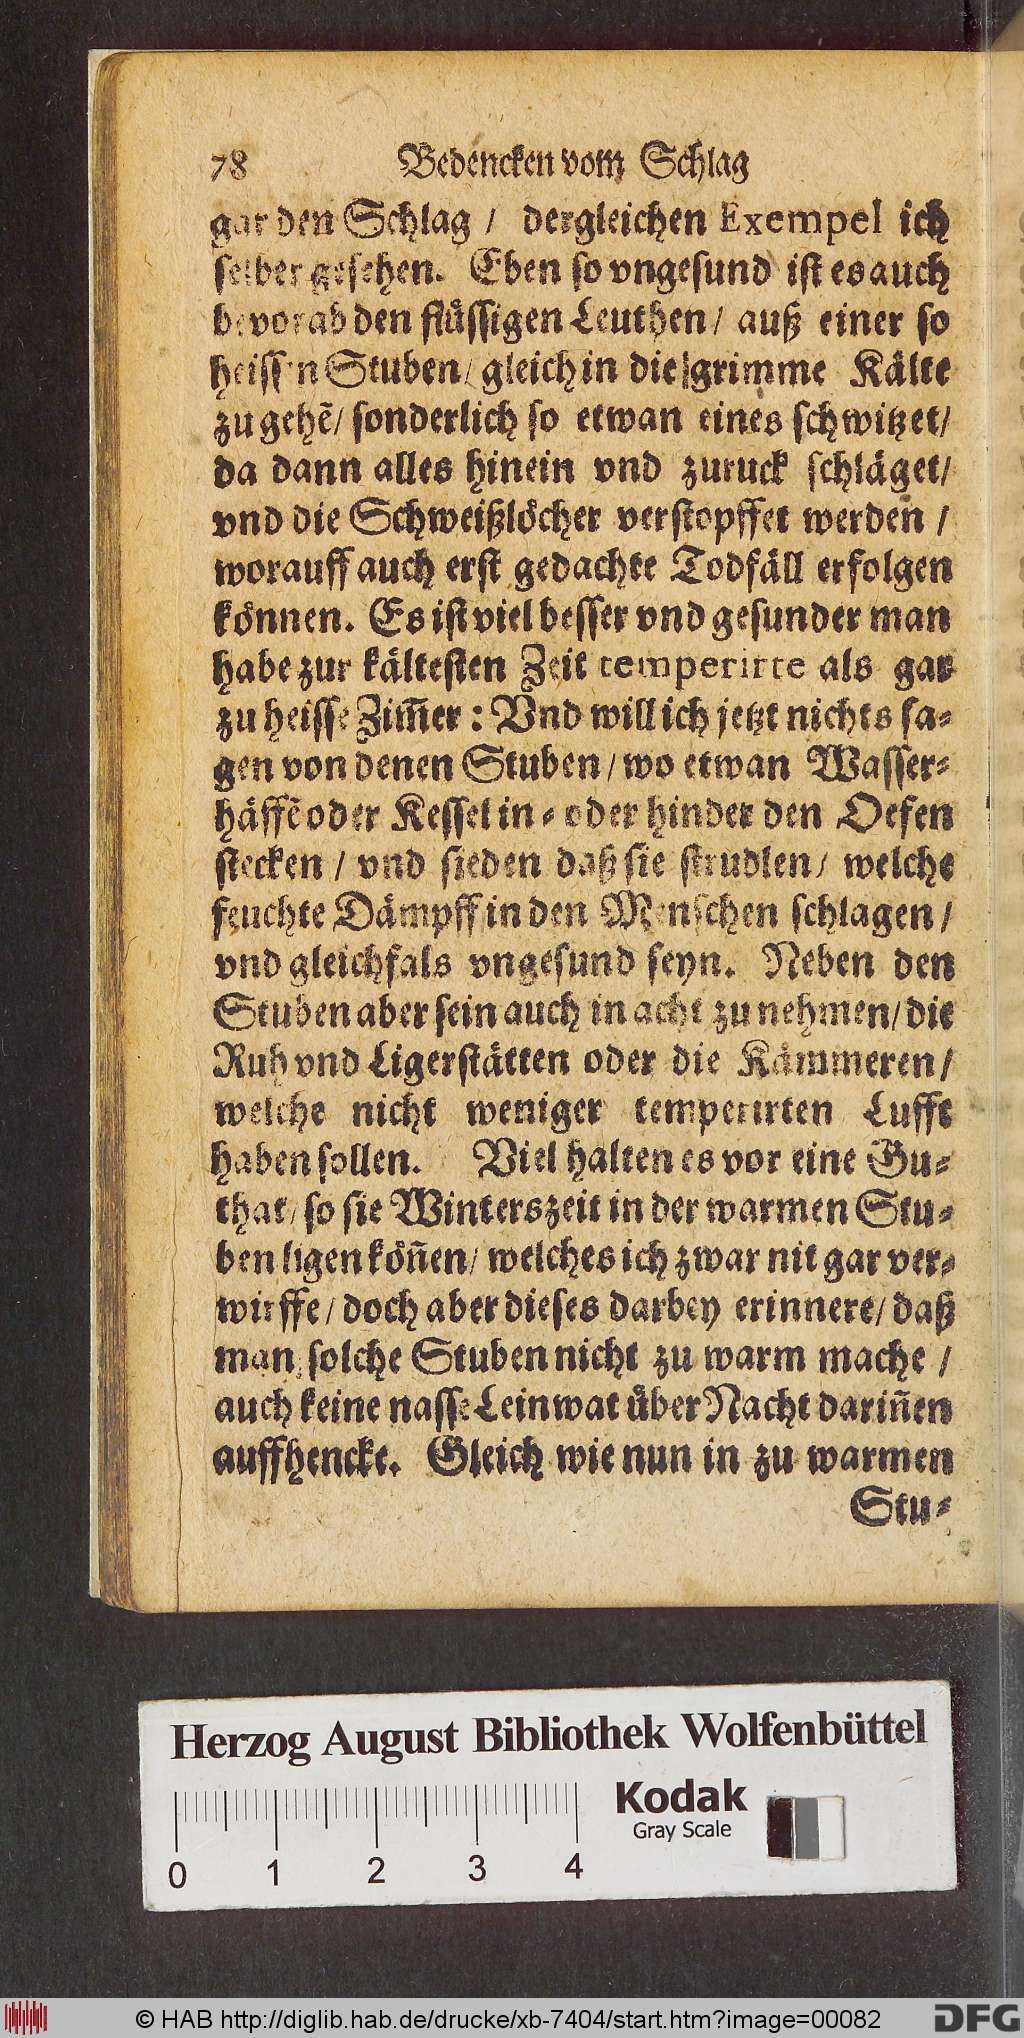 78 Bedencken vom Schlag
gar den Schlag / dergleichen Exempel ich
selber gesehen. Eben so vngesund ist es auch
bevorab den flüssigen Leuthen / auß einer so
heissen Stuben / gleich in die grimme Kälte
zu gehẽ / sonderlich so etwan eines schwitzet /
da dann alles hinein vnd zuruck schläget /
vnd die Schweißlöcher verstopffet werden /
worauff auch erst gedachte Todfäll erfolgen
können. Es ist viel besser vnd gesunder man
habe zur kältesten Zeit temperirte als gar
zu heisse Zim̃er : Vnd will ich jetzt nichts sa⸗
gen von denen Stuben / wo etwan Wasser⸗
häffẽ oder Kessel in⸗ oder hinder den Oefen
stecken / vnd sieden daß sie strudlen / welche
feuchte Dämpff in den Menschen schlagen /
vnd gleichfals vngesund seyn. Neben den
Stuben aber sein auch in acht zu nehmen / die
Ruh vnd Ligerstätten oder die Kämmeren /
welche nicht weniger temperirten Lufft
haben sollen. Viel halten es vor eine Gu⸗
that / so sie Winterszeit in der warmen Stu⸗
ben ligen köñen / welches ich zwar nit gar ver⸗
wirffe / doch aber dieses darbey erinnere / daß
man solche Stuben nicht zu warm mache /
auch keine nasse Leinwat über Nacht dariñen
auffhencke. Gleich wie nun in zu warmen
Stu⸗
Herzog August Bibliothek Wolfenbüttel
Kodak
Gray Scale
0 1 2 3 4
© HAB http://diglib.hab.de/drucke/xb-7404/start.htm?image=00082
DFG